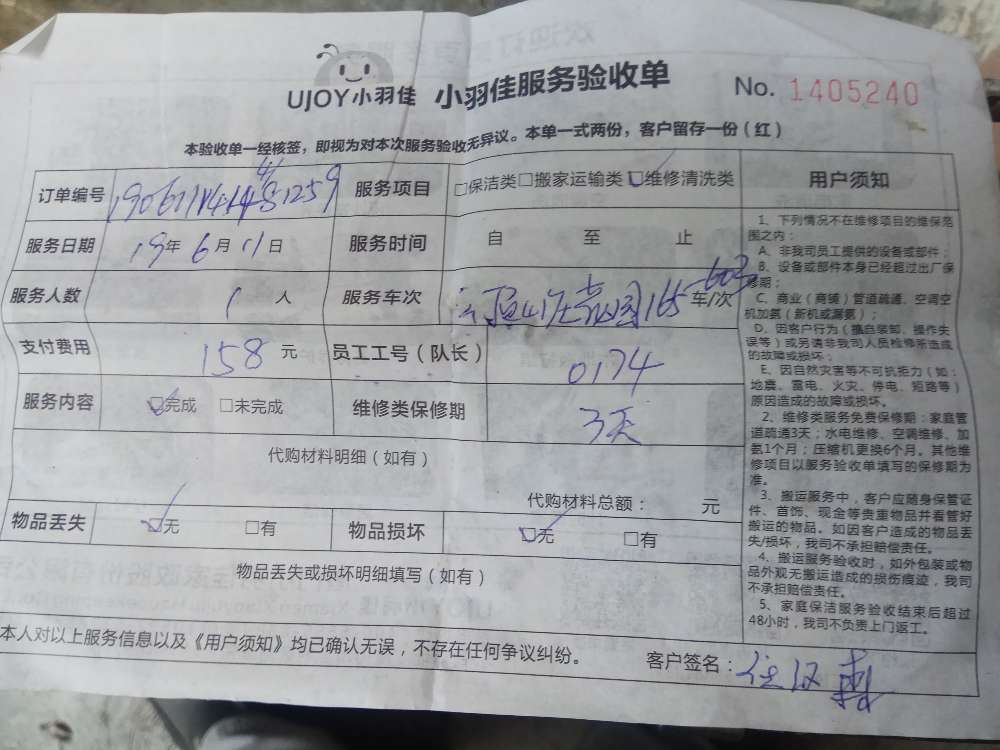 UJOY小羽佳 小羽佳服务验收单 No. 1405240
本验收单一经核签，即视为对本次服务验收无异议。本单一式两份，客户留存一份（红）
订单编号 服务项目 □保洁类□搬家运输类☑维修清洗类
服务日期 19年 6月 11日 服务时间 自 至 止
服务人数 1 人 服务车次 165 603 车/次
支付费用 158 元 员工工号（队长） 0174
服务内容 ☑完成 □未完成 维修类保修期 3天
代购材料明细（如有）
代购材料总额： 元
物品丢失 ☑无 □有 物品损坏 ☑无 □有
物品丢失或损坏明细填写（如有）
本人对以上服务信息以及《用户须知》均已确认无误，不存在任何争议纠纷。 客户签名：
用户须知
1、下列情况不在维修项目的维保范
围之内：
A、非我司员工提供的设备或部件；
B、设备或部件本身已经超过出厂保
修期；
C、商业（商铺）管道疏通、空调空
机加氨（新机或漏氨）；
D、因客户行为（擅自装卸、操作失
误等）或另请非我司人员检修所造成
的故障或损坏；
E、因自然灾害等不可抗拒力（如：
地震、雷电、火灾、停电、短路等）
原因造成的故障或损坏。
2、维修类服务免费保修期：家庭管
道疏通3天；水电维修、空调维修、加
氨1个月；压缩机更换6个月。其他维
修项目以服务验收单填写的保修期为
准。
3、搬运服务中，客户应随身保管证
件、首饰、现金等贵重物品并看管好
搬运的物品。如因客户造成的物品丢
失/损坏，我司不承担赔偿责任。
4、搬运服务验收时，如外包装或物
品外观无搬运造成的损伤痕迹，我司
不承担赔偿责任。
5、家庭保洁服务验收结束后超过
48小时，我司不负责上门返工。